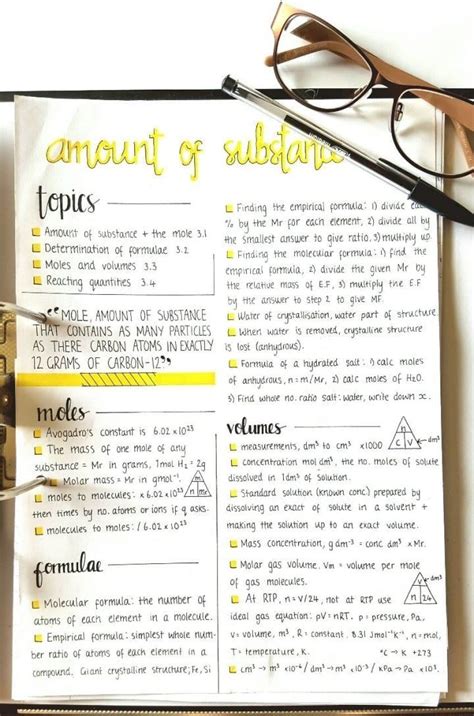 amount of substance
topics
Amount of substance + the mole 3.1
Determination of formulae 3.2
Moles and volumes 3.3
Reacting quantities 3.4
"MOLE, AMOUNT OF SUBSTANCE
THAT CONTAINS AS MANY PARTICLES
AS THERE CARBON ATOMS IN EXACTLY
12 GRAMS OF CARBON-12"
moles
Avogadro's constant is 6.02 x 10²³
The mass of one mole of any
substance = Mr in grams, 1mol H₂ = 2g
Molar mass = Mr in gmol⁻¹.
m
n mr
moles to molecules: x 6.02 x 10²³
then times by no. atoms or ions if q asks.
molecules to moles: / 6.02 x 10²³
formulae
Molecular formula: the number of
atoms of each element in a molecule.
Empirical formula: simplest whole num-
ber ratio of atoms of each element in a
compound. Giant crystalline structure, Fe, Si
Finding the empirical formula: 1) divide each
% by the Mr for each element, 2) divide all by
the smallest answer to give ratio, 3) multiply up.
Finding the molecular formula: 1) find the
empirical formula, 2) divide the given Mr by
the relative mass of E.F, 3) multiply the E.F
by the answer to step 2 to give MF.
Water of crystallisation, water part of structure.
When water is removed, crystalline structure
is lost (anhydrous).
Formula of a hydrated salt: 1) calc moles
of anhydrous, n = m/Mr, 2) calc moles of H₂O.
3) Find whole no. ratio salt: water, write down x.
volumes
measurements, dm³ to cm³ x1000
n
C V dm³
concentration mol dm³, the no. moles of solute
dissolved in 1dm³ of solution.
Standard solution (known conc) prepared by
dissolving an exact of solute in a solvent +
making the solution up to an exact volume.
Mass concentration, g dm⁻³ = conc dm³ x Mr.
Molar gas volume. Vm = volume per mole
of gas molecules.
V dm³
n 24
At RTP, n = V/24, not at RTP use
ideal gas equation: pV = nRT. p = pressure, Pa,
V = volume, m³, R = constant. 8.31 Jmol⁻¹K⁻¹, n = mol,
T = temperature, K. °C → K +273
cm³ → m³ x10⁻⁶ / dm³ → m³ x10⁻³ / kPa → Pa x10³.